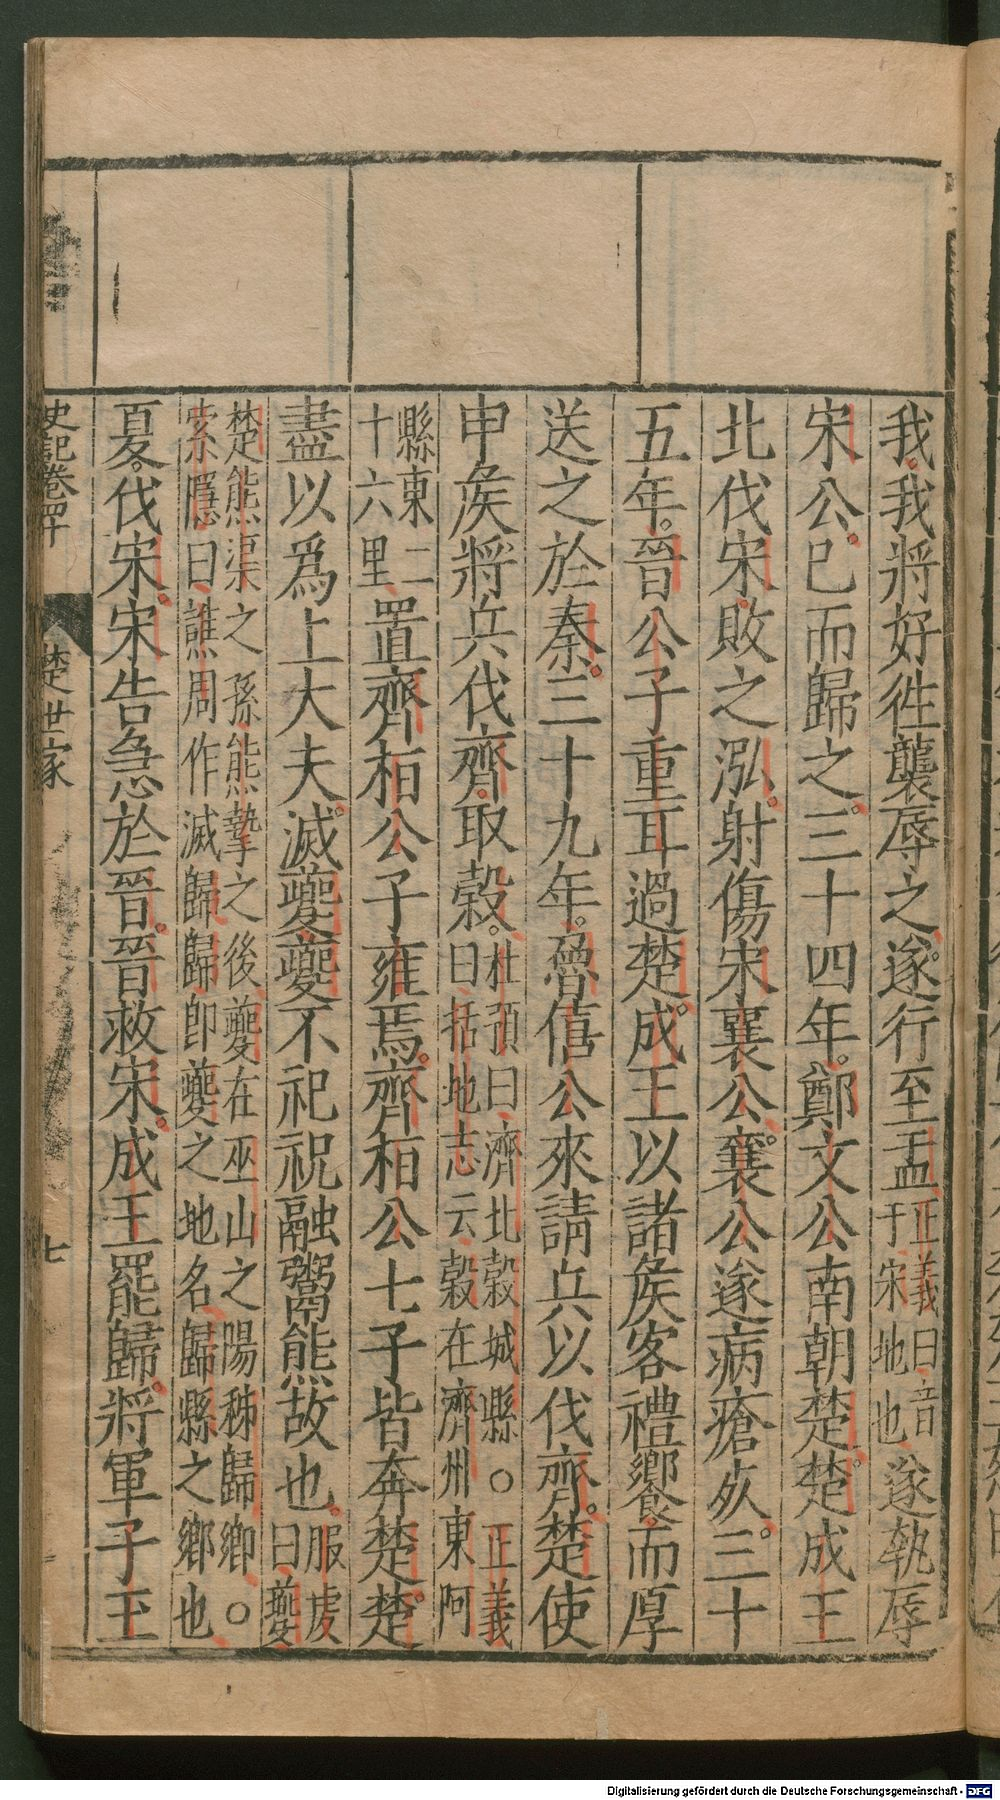 我我將好徃襲辱之遂行至盂正義曰音于宋地也遂執辱
宋公已而歸之三十四年鄭文公南朝楚楚成王
北伐宋敗之泓射傷宋襄公襄公遂病瘡死三十
五年晉公子重耳過楚成王以諸矦客禮饗而厚
送之於秦三十九年魯僖公來請兵以伐齊楚使
申矦將兵伐齊取穀杜預曰濟北穀城縣〇正義曰括地志云穀在濟州東阿
縣東二十六里置齊桓公子雍焉齊桓公七子皆奔楚楚
盡以爲上大夫滅夔夔不祀祝融鬻熊故也服虔曰夔
楚熊渠之孫熊摯之後夔在巫山之陽秭歸鄉〇索隱曰譙周作滅歸歸即夔之地名歸縣之鄉也
夏伐宋宋告急於晉晉救宋成王罷歸將軍子玉
史記卷四十 楚世家 七
Digitalisierung gefördert durch die Deutsche Forschungsgemeinschaft - DFG